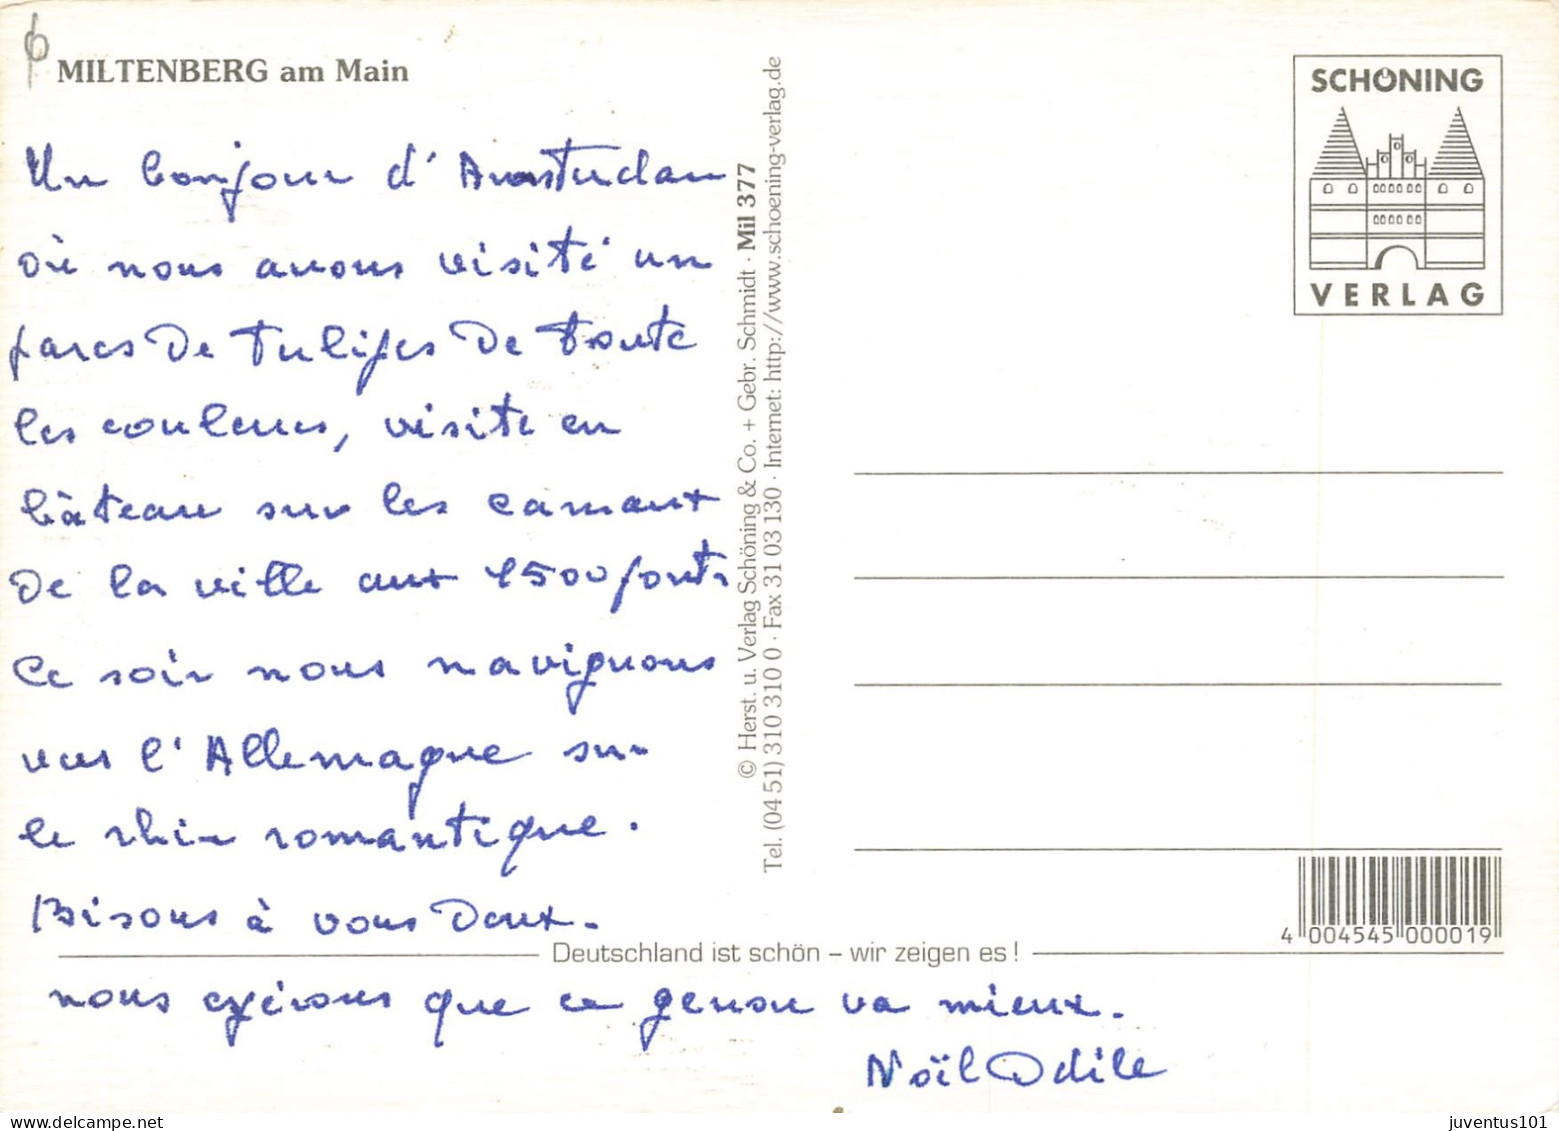 MILTENBERG am Main
Un bonjour d'Amsterdam
où nous avons visité un
parcs de Tulipes de toute
les couleurs, visite en
bâteau sur les camaux
de la ville aux 1500 ponts
Ce soir nous naviguons
vers l'Allemagne sur
le rhin romantique.
Bisous à vous Deux.
nous espérons que ce genou va mieux.
Noël Odile
© Herst. u. Verlag Schöning & Co. + Gebr. Schmidt · Mil 377
Tel. (04 51) 310 310 0 · Fax 31 03 130 · Internet: http://www.schoening-verlag.de
Deutschland ist schön – wir zeigen es !
SCHÖNING
VERLAG
4 004545 000019
juventus101